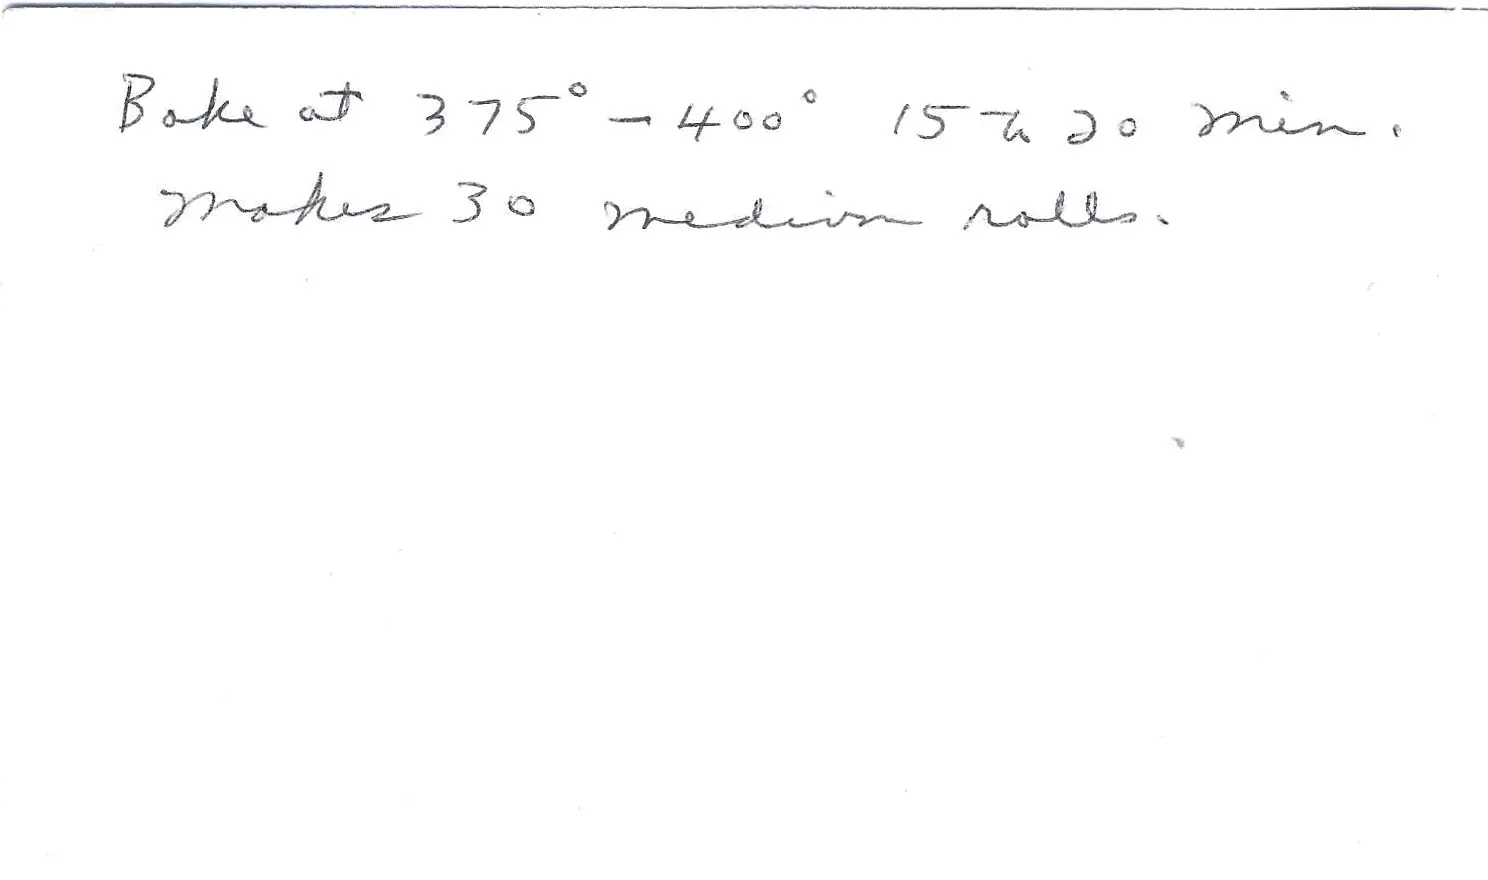 Bake at 375° - 400° 15 to 20 min.
Makes 30 medium rolls.